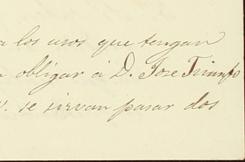 a los usos que tengan
obligar á D. Jose Triunfo
V. se sirvan pasar dos